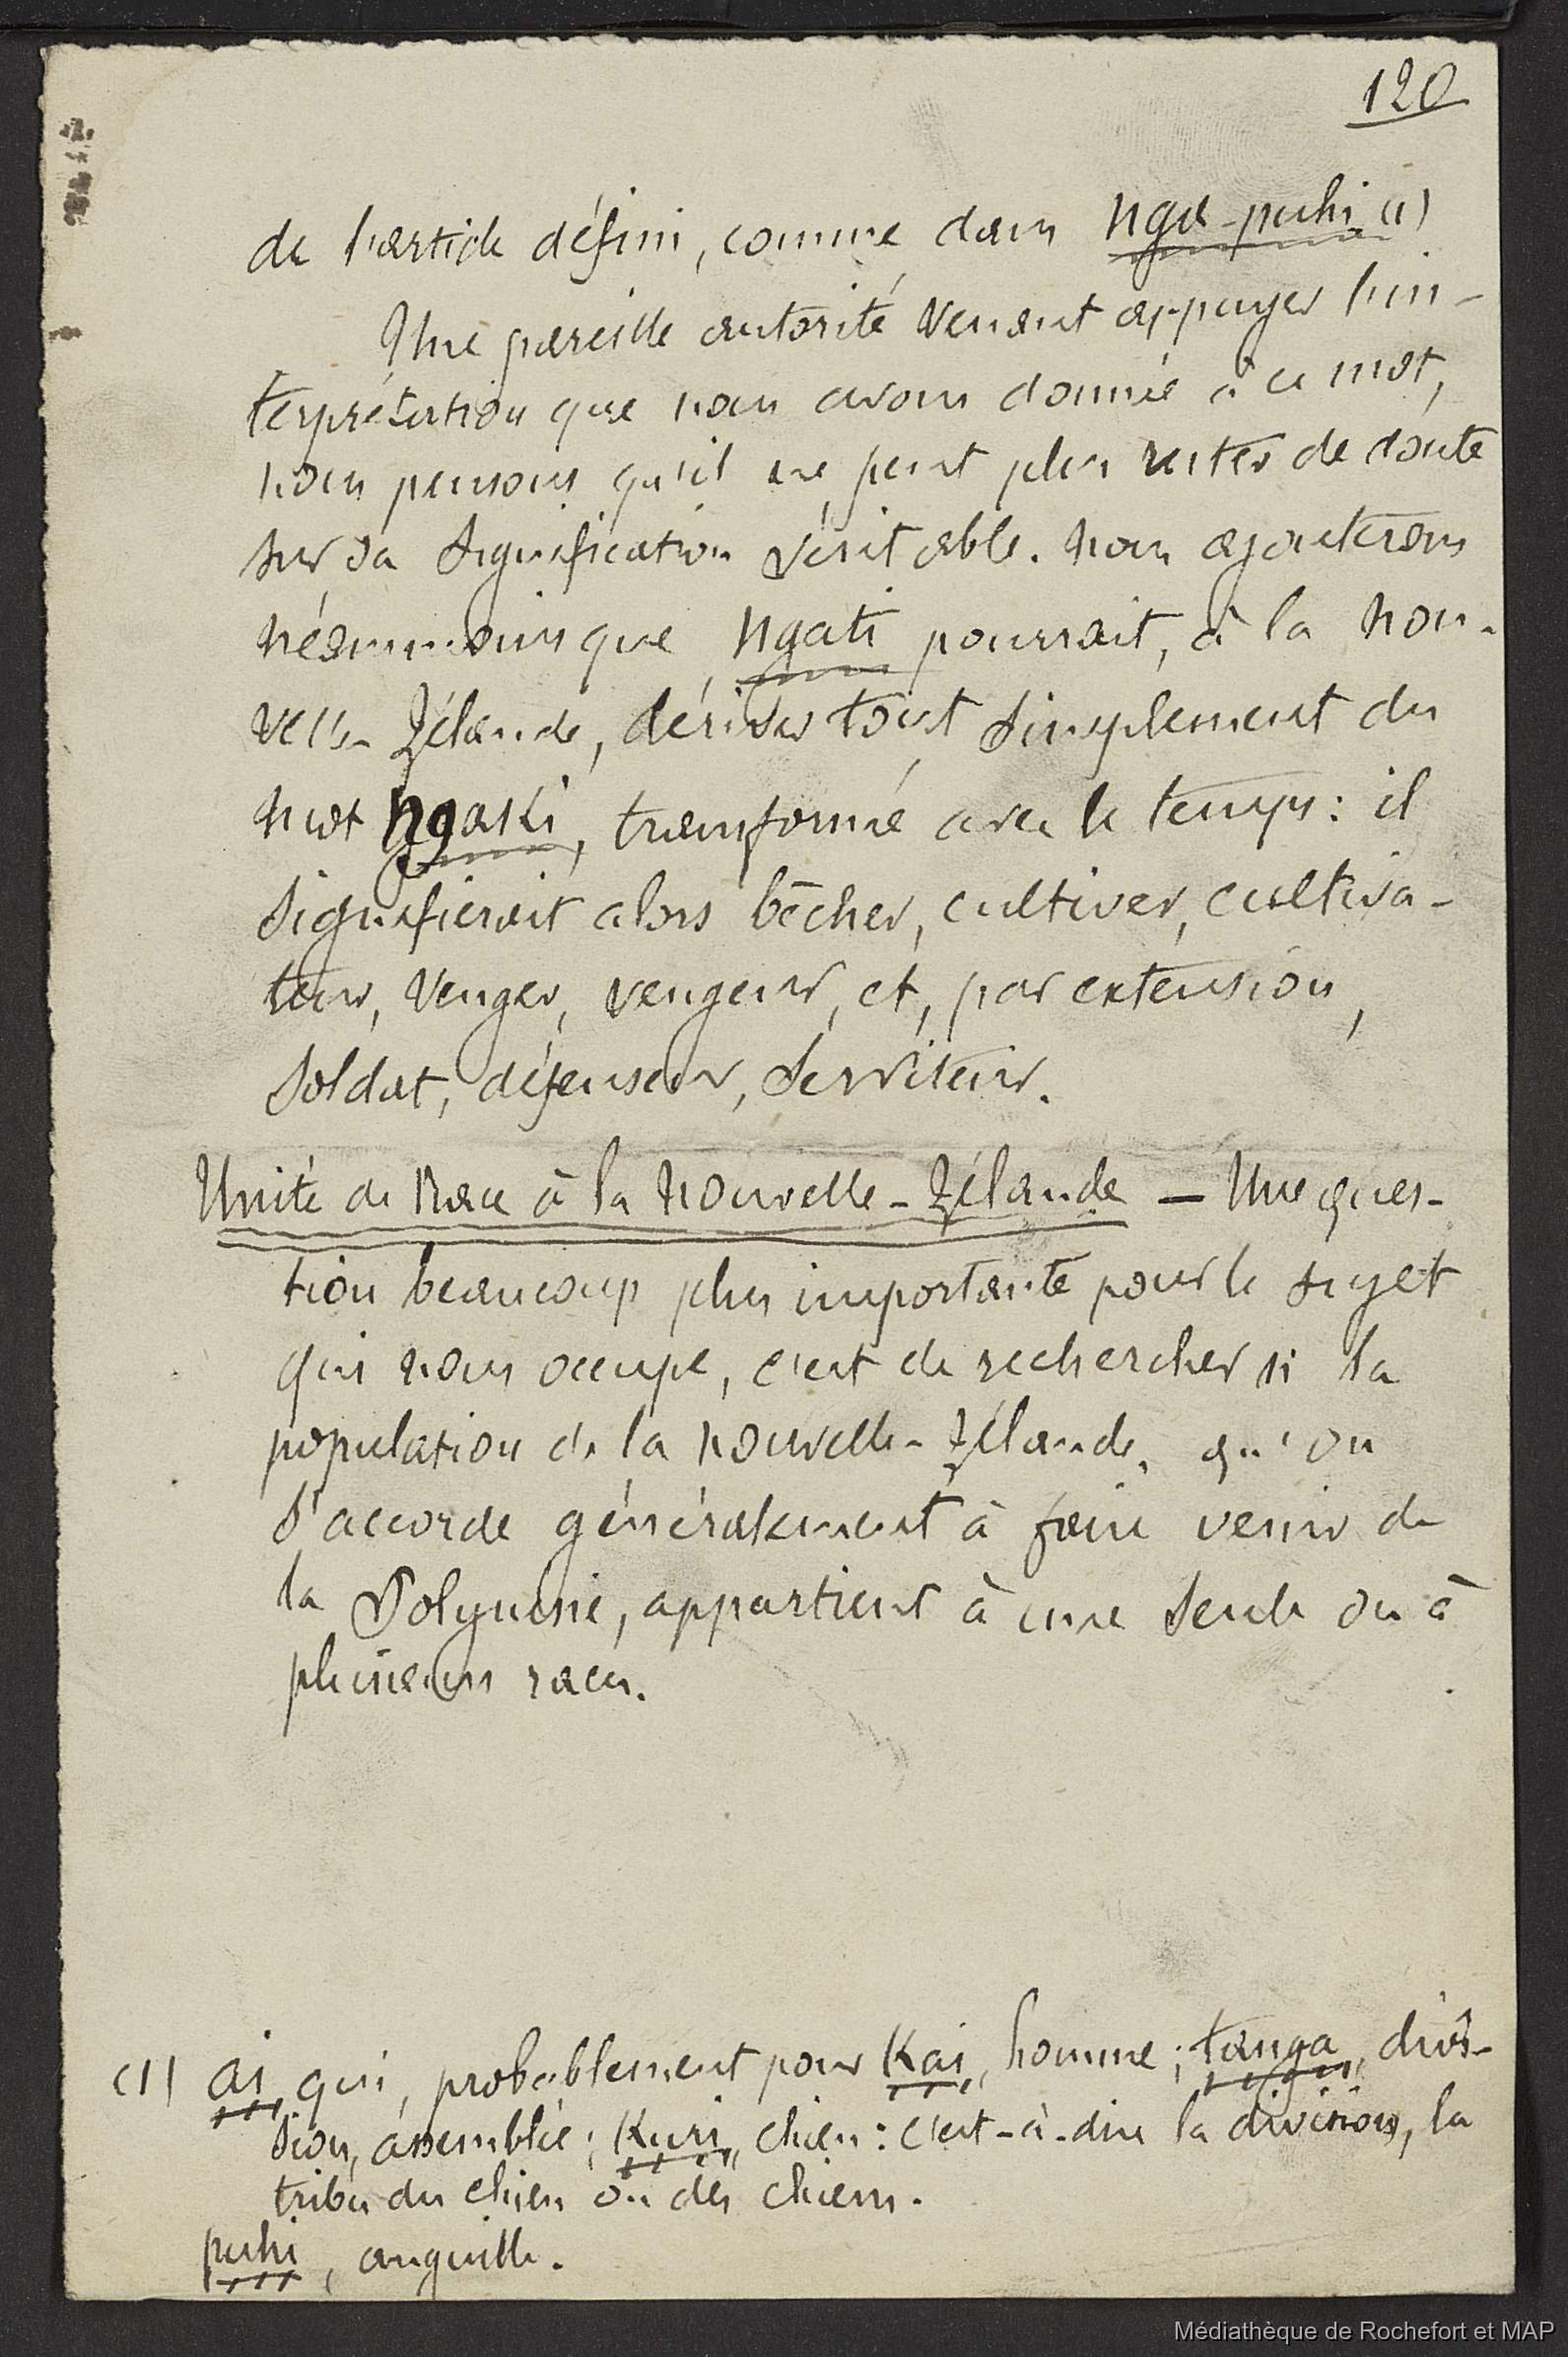 120
de l'article défini, comme dans Nga-puhi (1)
Une pareille autorité venant appuyer l'in-
terprétation que nous avons donnée à ce mot,
nous pensons qu'il ne peut plus rester de doute
sur sa signification véritable. Nous ajouterons
néanmoins que Ngati pourrait, à la Nou-
velle-Zélande, dériver tout simplement du
mot Ngaki, transformé avec le temps : il
signifierait alors bêcher, cultiver, cultiva-
teur, venger, vengeur, et, par extension,
soldat, défenseur, serviteur.
Unité de Race à la Nouvelle-Zélande — Une ques-
tion beaucoup plus importante pour le sujet
qui nous occupe, c'est de rechercher si la
population de la Nouvelle-Zélande, qu'on
s'accorde généralement à faire venir de
la Polynésie, appartient à une seule ou à
plusieurs races.
(1) ai, qui, probablement pour Kai, homme ; tanga, divi-
sion, assemblée ; Kuri, chien : c'est-à-dire la division, la
tribu du chien ou des chiens.
puhi, anguille.
Médiathèque de Rochefort et MAP